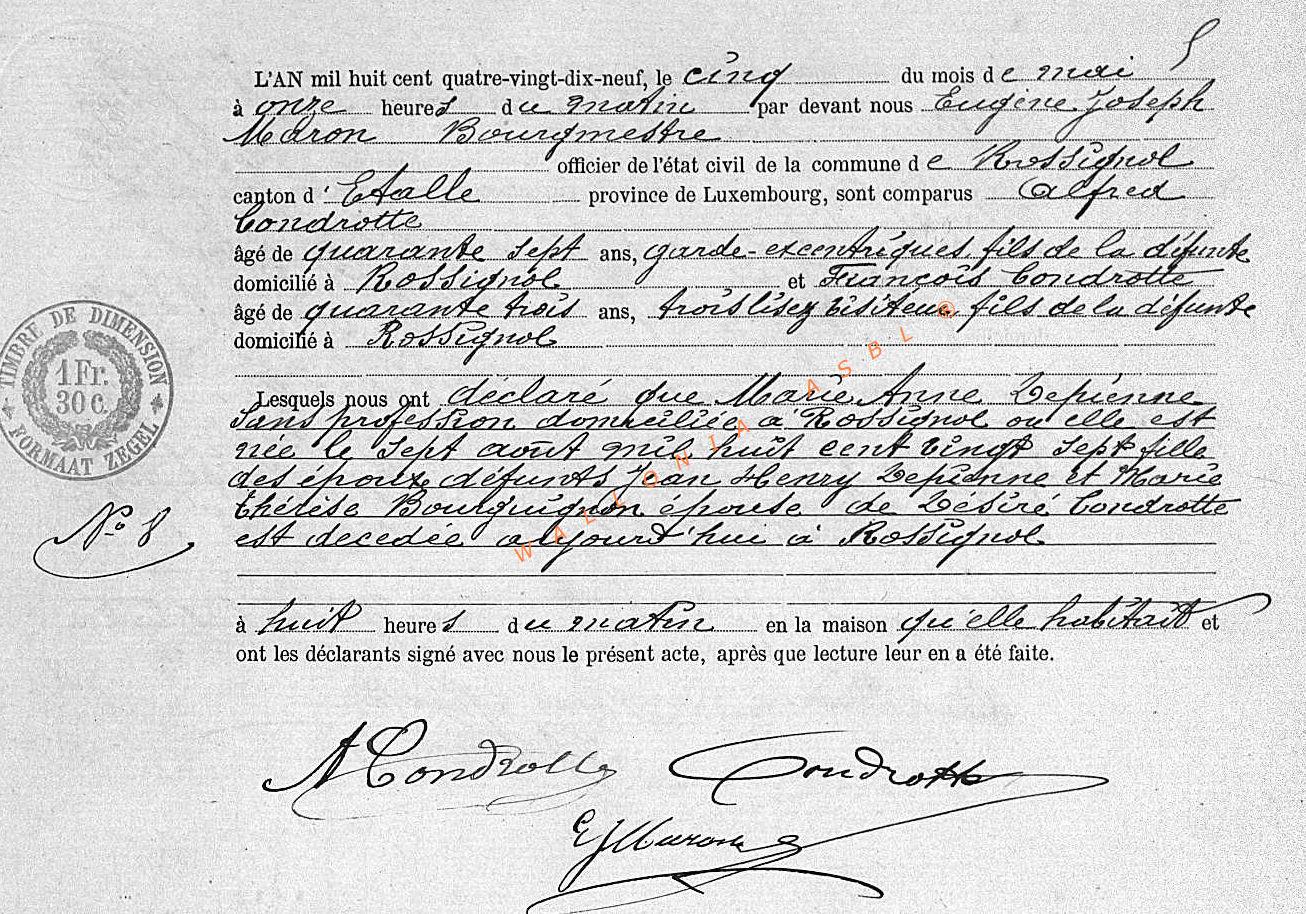 5
L'AN mil huit cent quatre-vingt-dix-neuf, le cinq du mois de mai
à onze heures du matin par devant nous Eugène Joseph
Maron Bourgmestre
officier de l'état civil de la commune de Rossignol
canton d'Etalle province de Luxembourg, sont comparus Alfred
Condrotte
âgé de quarante sept ans, garde-excentriques fils de la défunte
domicilié à Rossignol et François Condrotte
âgé de quarante trois ans, trois lisez visiteur fils de la défunte
domicilié à Rossignol
TIMBRE DE DIMENSION
1 Fr.
30 C.
FORMAAT ZEGEL
Lesquels nous ont déclaré que Marie Anne Depienne
sans profession domiciliée à Rossignol ou elle est
née le sept août mil huit cent vingt sept fille
des époux défunts Jean Henry Depienne et Marie
thérèse Bourguignon épouse de Désiré Condrotte
est decedée aujourd'hui à Rossignol
N° 8
à huit heures du matin en la maison qu'elle habitait et
ont les déclarants signé avec nous le présent acte, après que lecture leur en a été faite.
A Condrotte Condrotte
EJMaron
WALLONIA ASBL ©